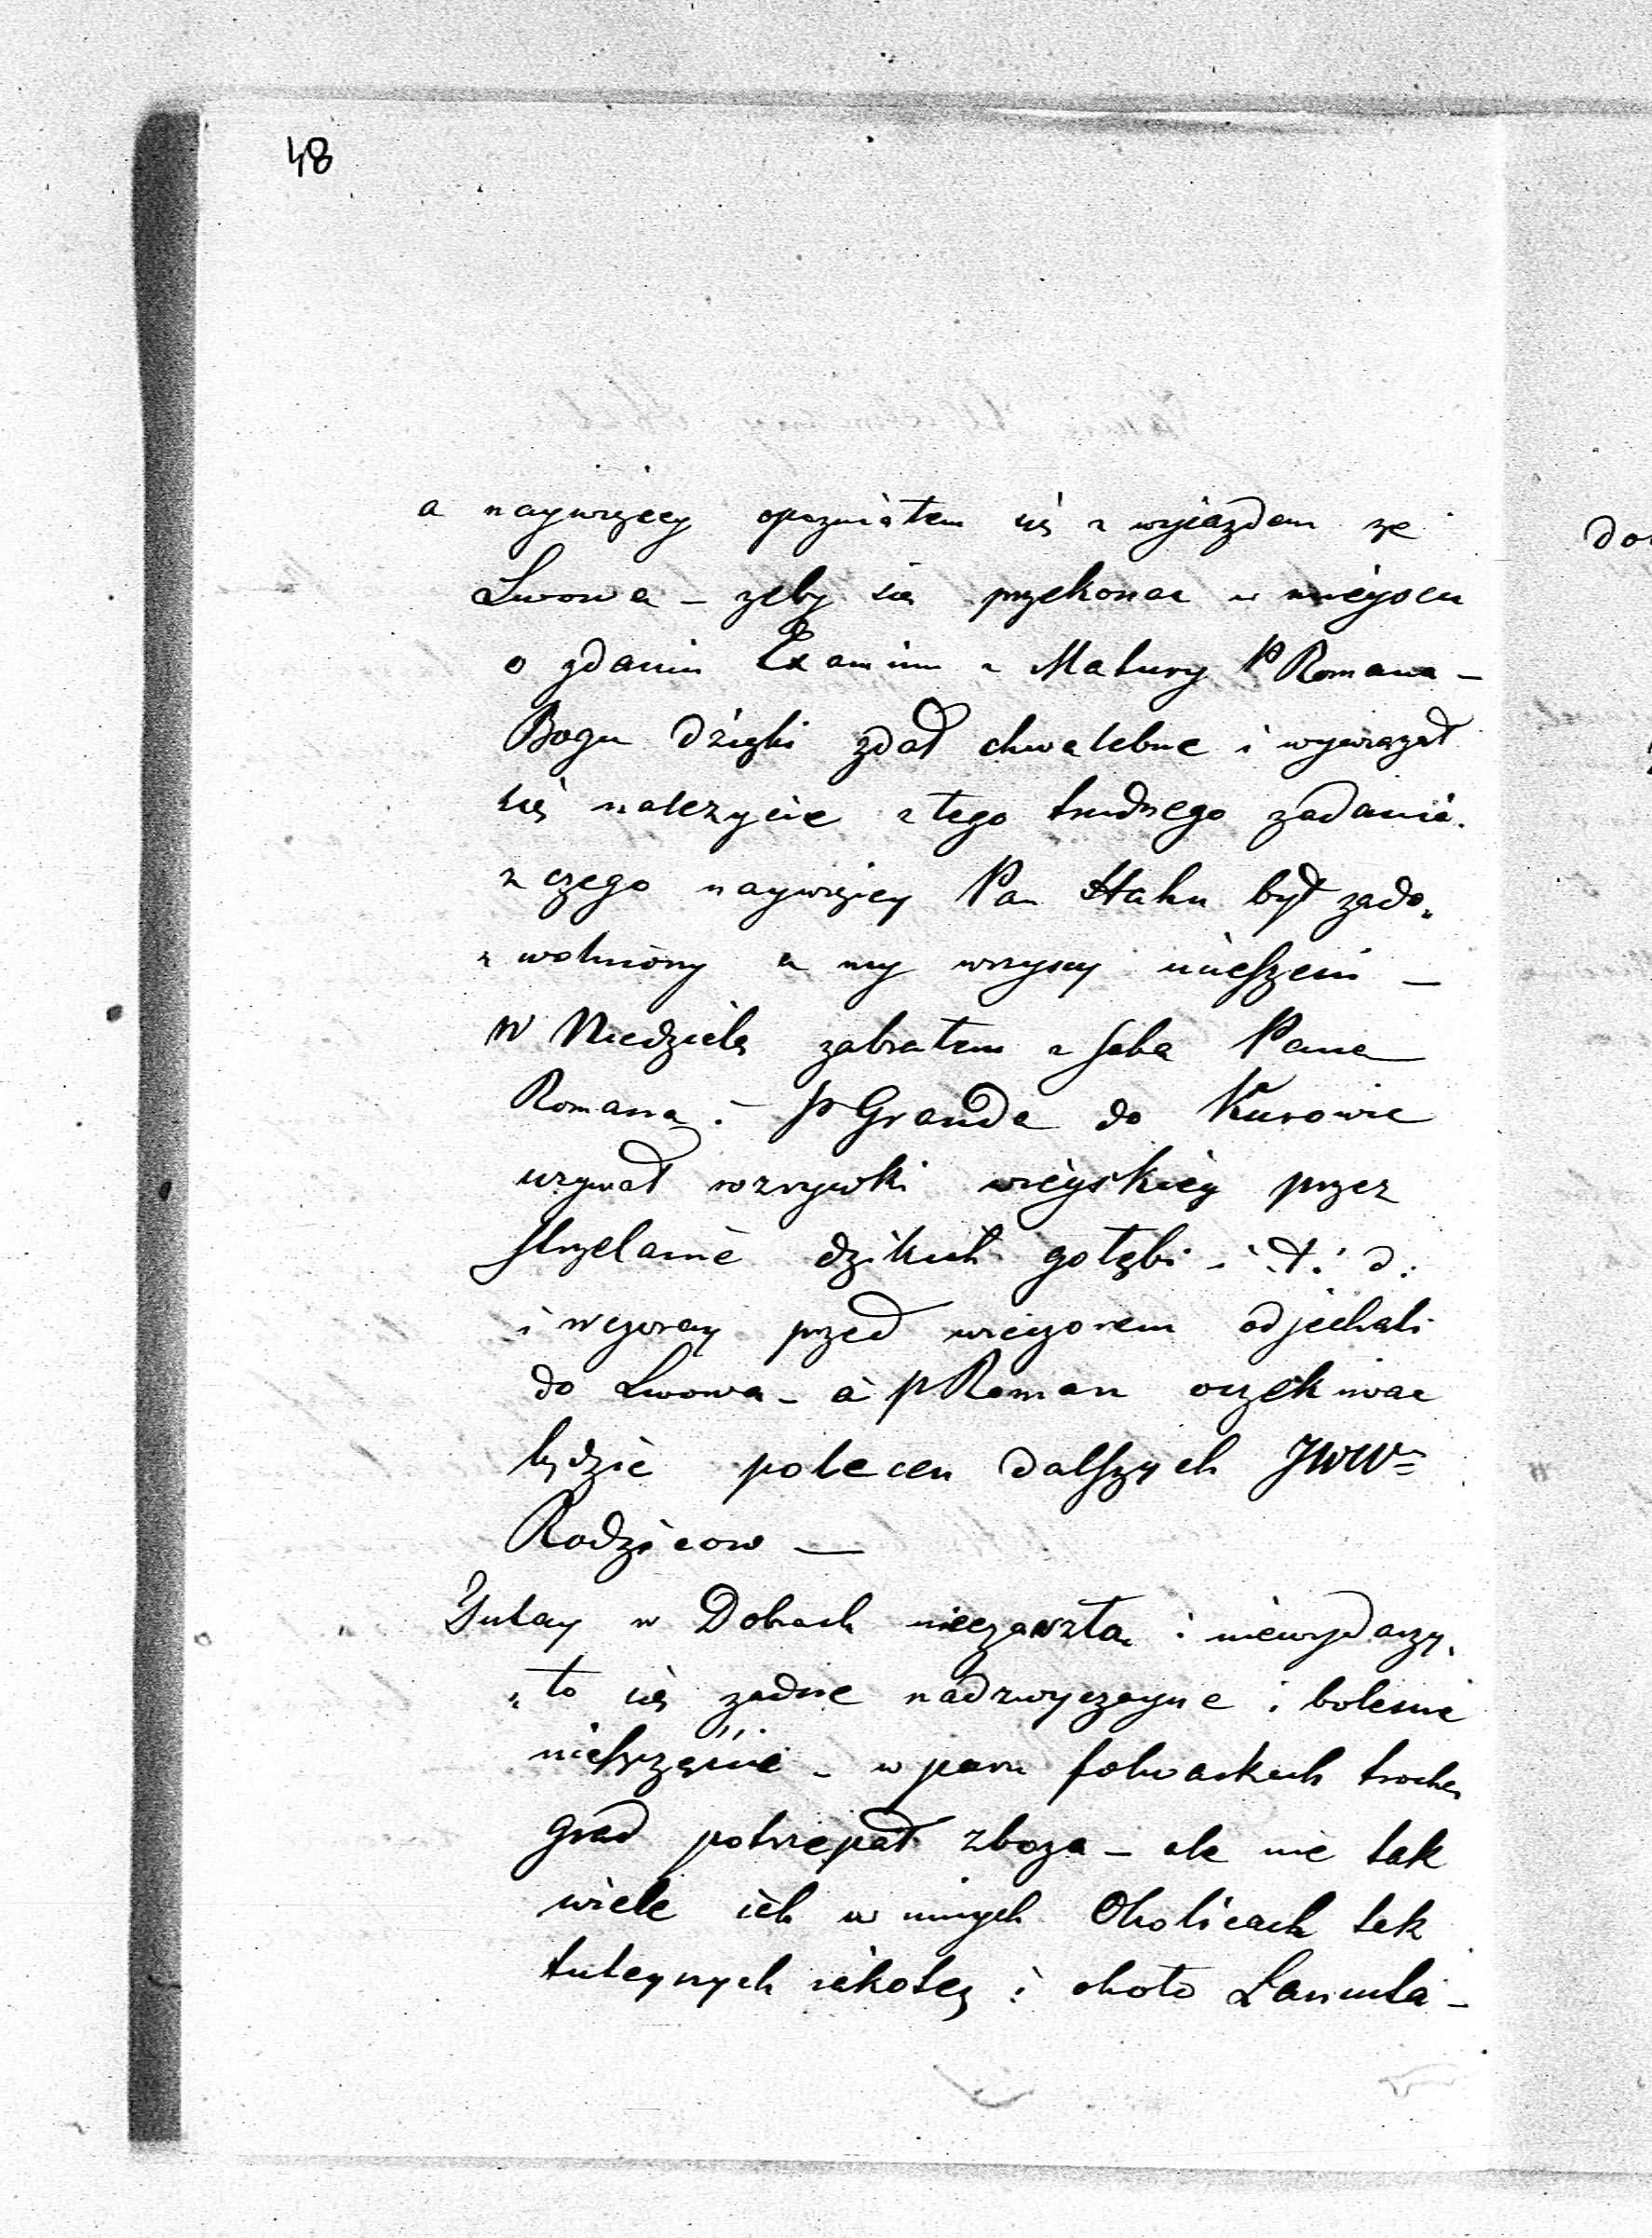 48
a naywięcey opozniałem się z wyjazdem ze
Lwowa – zeby się przekonac w mieyscu
o zdaniu Examinu z Matury P Romana –
Bogu dzięki zdał chwalebnie i wywiązał
się nalezycie z tego trudnego zadania.
z czego naywięcey Pan Hahn był zado„
„wolniony a my wszyscy ucieszeni –
W Niedzielę zabrałem z sobą Pana
Romana i P Granda do Kurowic
uzywał rozrywki wieyskiey przez
strzelanie dzikich gołębi i t: d:
i wczoray przed wieczorem odjechali
do Lwowa – a P Roman oczekiwac
będzie polecen dalszych JWW
Rodzicow –
Tutay w Dobrach niezaszła i niewydarzy„
„ło się zadne nadzwyczayne i bolesne
nieszczęście – w paru folwarkach trochę
grad potrzepał zboza – ale nie tak
wiele jch w innych Okolicach tak
tuteyszych jakotez i około Łancuta –
do